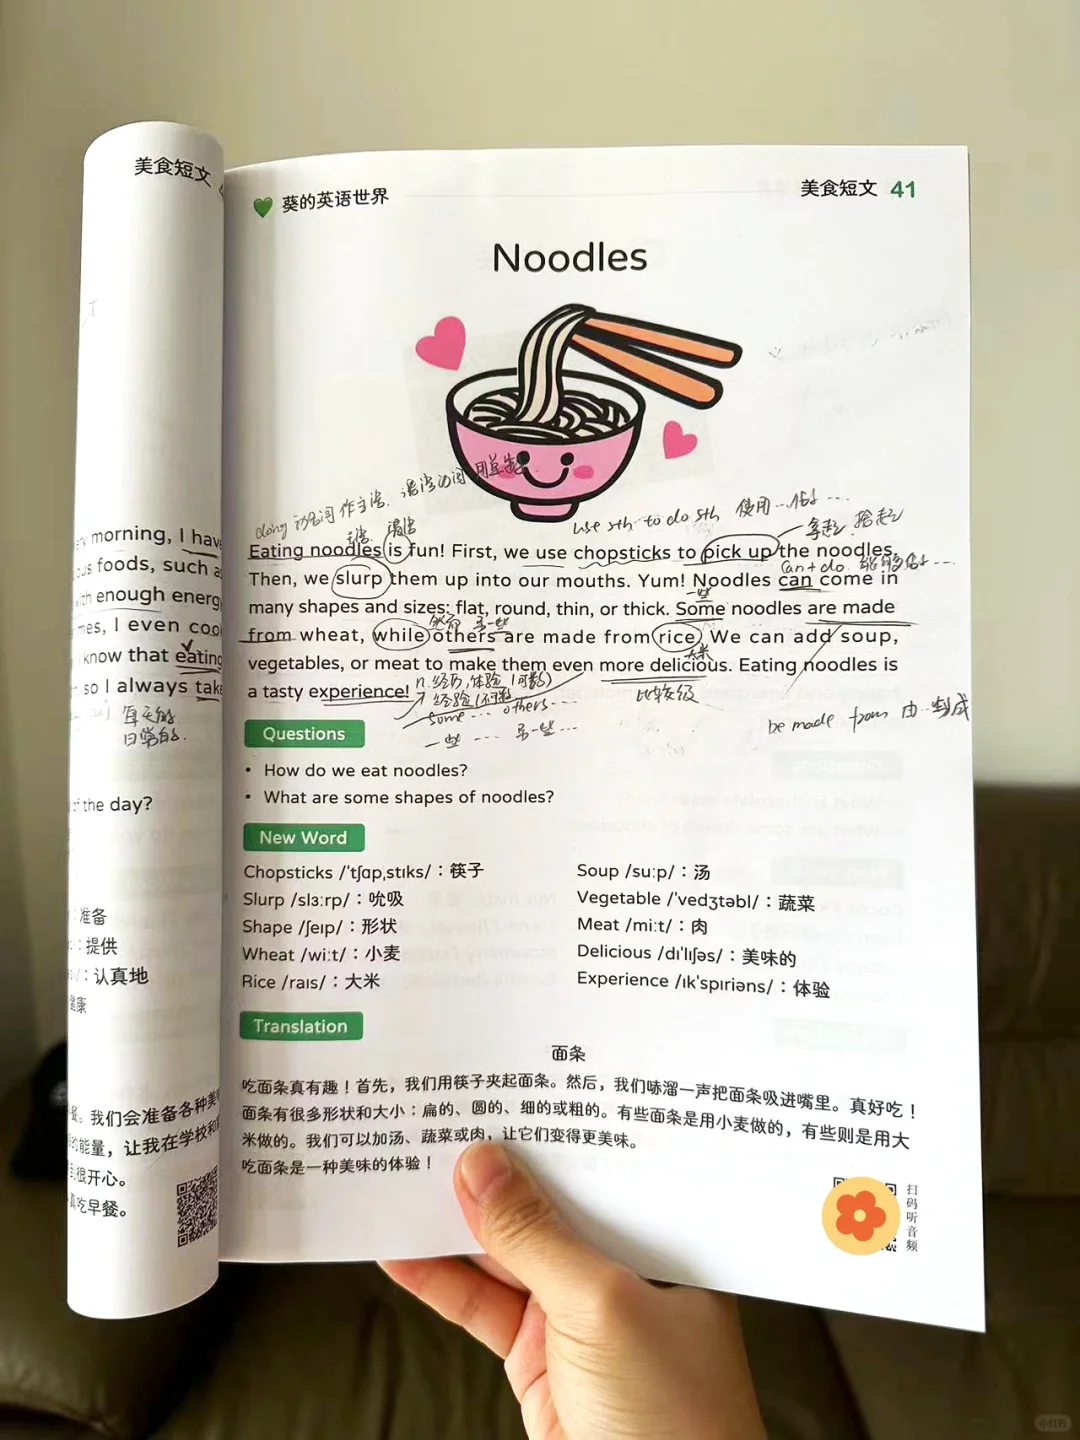 美食短文
morning, I have
foods, such as
with enough energy
I even cook
know that eating
so I always take
耳天的
日常的.
of the day?
：准备
：提供
：认真地
健康
我们会准备各种美
的能量，让我在学校和
很开心。
真吃早餐。
葵的英语世界
美食短文 41
Noodles
doing 动名词作主语. 谓语动词用单
主语. 谓语
use sth to do sth 使用…做…
拿起 拾起
Eating noodles is fun! First, we use chopsticks to pick up the noodles.
can+do. 能够做…
Then, we slurp them up into our mouths. Yum! Noodles can come in
一些
many shapes and sizes: flat, round, thin, or thick. Some noodles are made
然而 另一些
from wheat, while others are made from rice. We can add soup,
大米
vegetables, or meat to make them even more delicious. Eating noodles is
a tasty experience!
n. 经历, 体验 (可数)
经验 (不可数)
比较级
some … others …
一些 … 另一些…
be made from 由…制成
Questions
• How do we eat noodles?
• What are some shapes of noodles?
New Word
Chopsticks /ˈtʃɑpˌstɪks/：筷子
Slurp /slɜːrp/：吮吸
Shape /ʃeɪp/：形状
Wheat /wiːt/：小麦
Rice /raɪs/：大米
Soup /suːp/：汤
Vegetable /ˈvedʒtəbl/：蔬菜
Meat /miːt/：肉
Delicious /dɪˈlɪʃəs/：美味的
Experience /ɪkˈspɪriəns/：体验
Translation
面条
吃面条真有趣！首先，我们用筷子夹起面条。然后，我们哧溜一声把面条吸进嘴里。真好吃！
面条有很多形状和大小：扁的、圆的、细的或粗的。有些面条是用小麦做的，有些则是用大
米做的。我们可以加汤、蔬菜或肉，让它们变得更美味。
吃面条是一种美味的体验！
扫码听音频
小红书